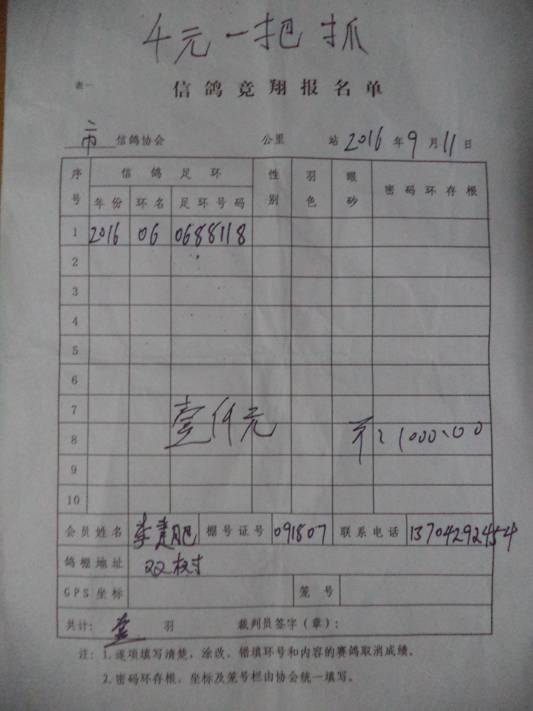 4元一把抓
表一
信鸽竞翔报名单
市 信鸽协会 公里 站 2016 年 9 月 11 日
序号 信鸽足环 性别 羽色 眼砂 密码环存根
年份 环名 足环号码
1 2016 06 0688118
2
3
4
5
6
7
壹仟元
8 1000.00
9
10
会员姓名 李建肥 棚号证号 091807 联系电话 13704292454
鸽棚地址 双树
GPS坐标 笼号
共计: 壹 羽 裁判员签字(章):
注: 1.逐项填写清楚，涂改、错填环号和内容的赛鸽取消成绩。
2.密码环存根、坐标及笼号栏由协会统一填写。